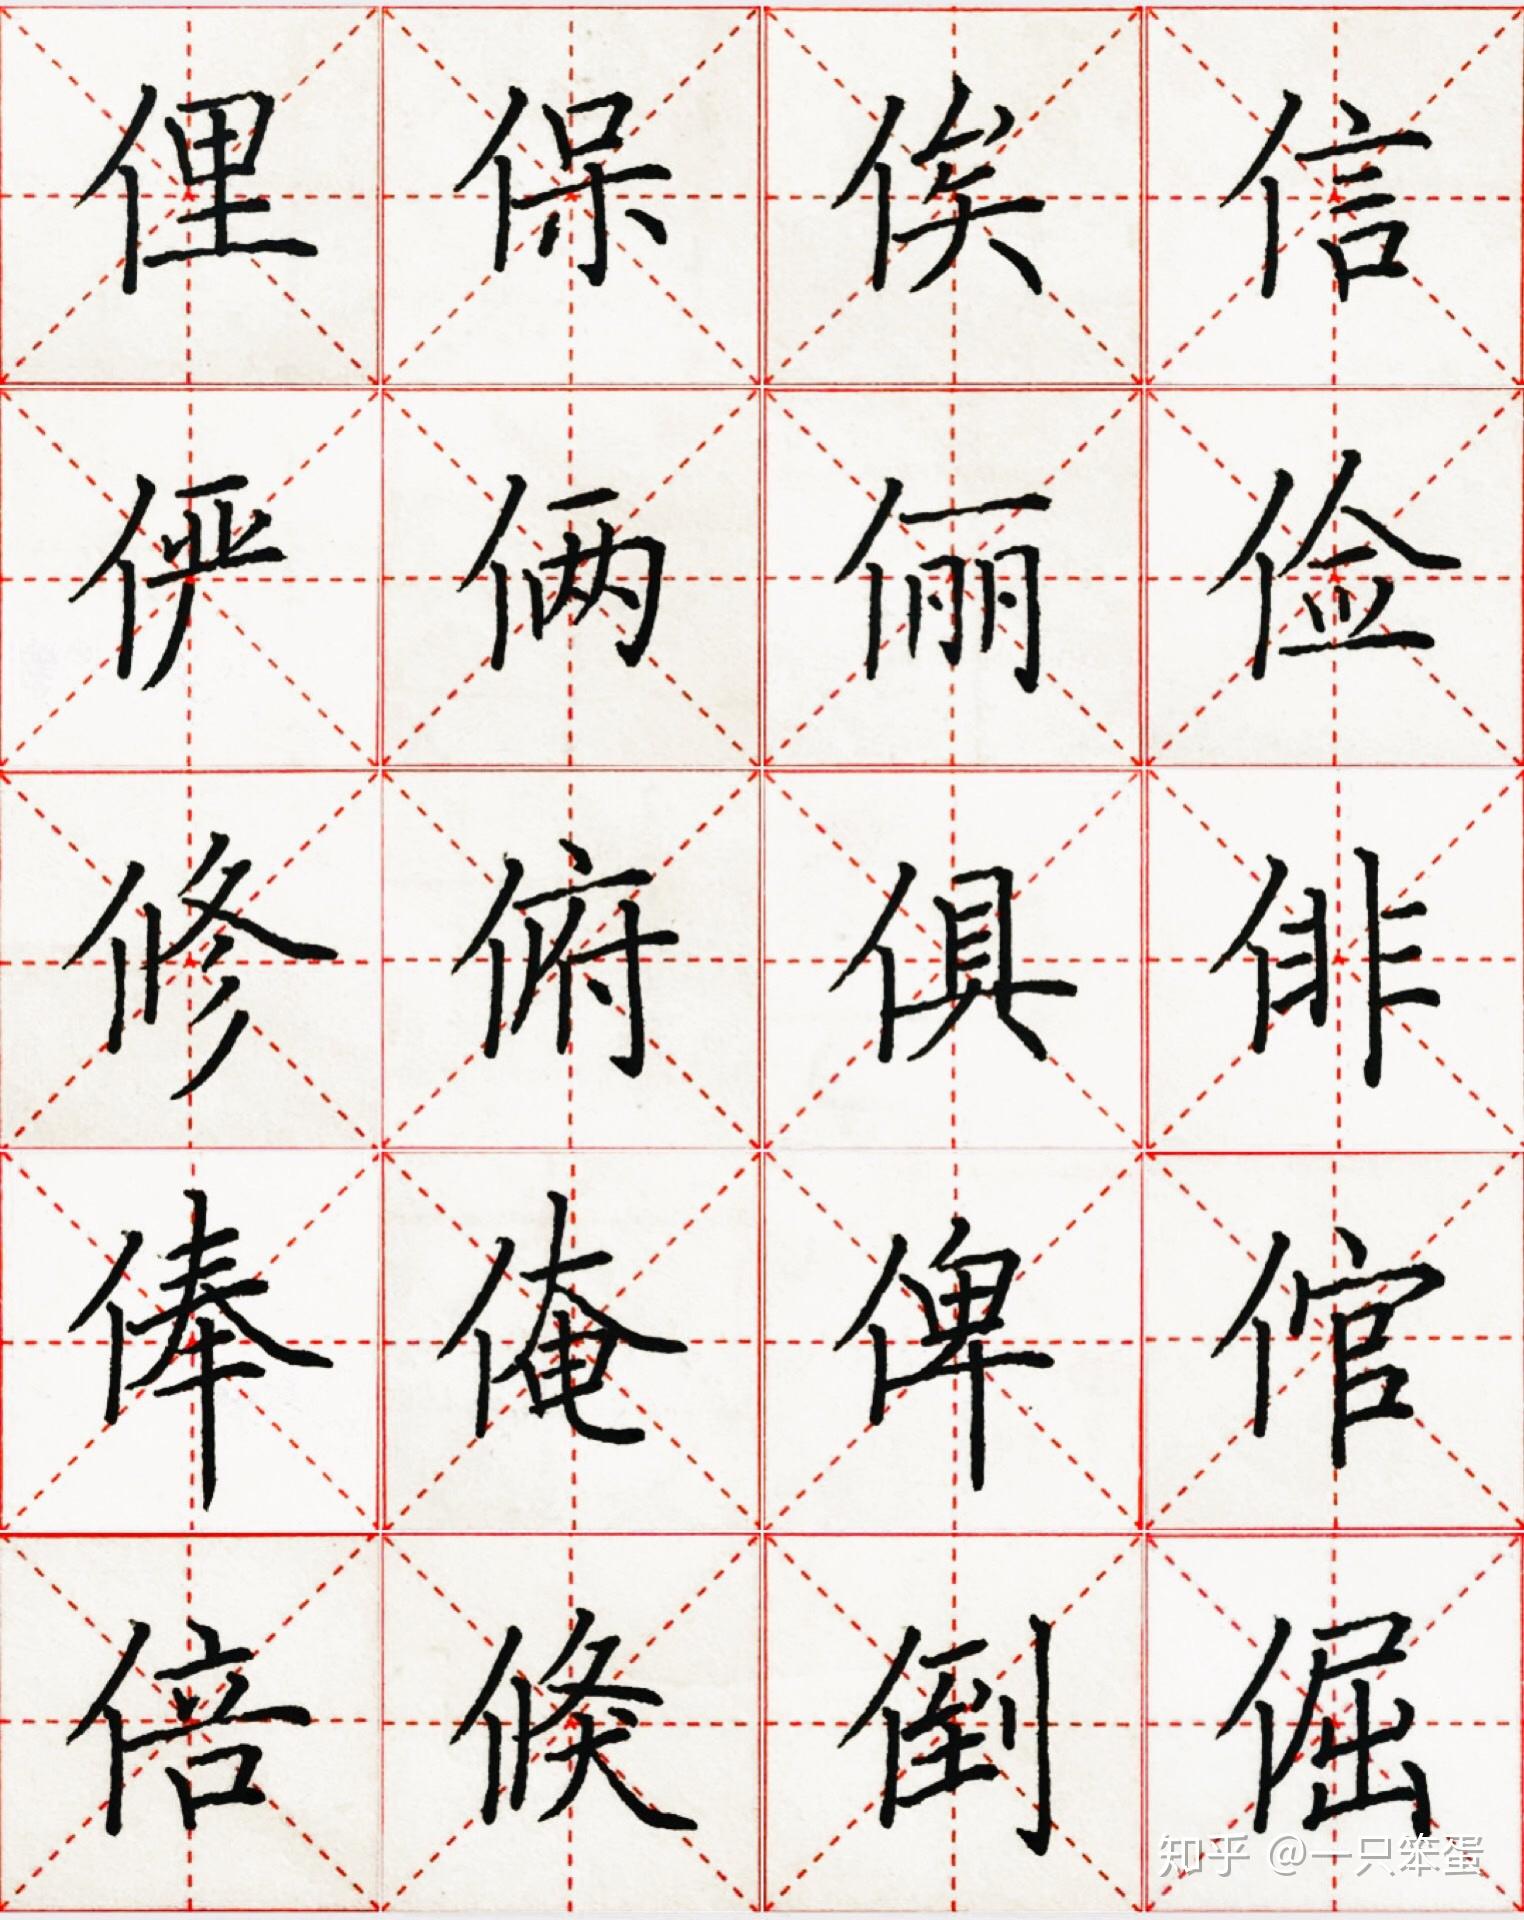 俚保俟信
俨俩俪俭
修俯俱俳
俸俺俾倌
倍倏倒倔
知乎 @一只笨蛋